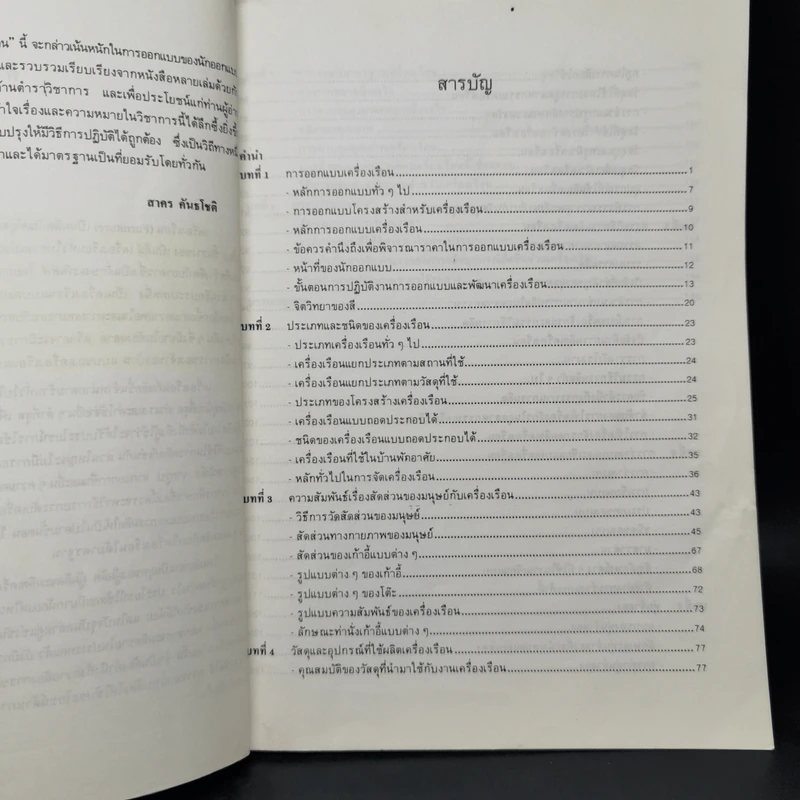 น" นี้ จะกล่าวเน้นหนักในการออกแบบของนักออกแบบ
และรวบรวมเรียบเรียงจากหนังสือหลายเล่มด้วยกัน
ด้านตำราวิชาการ และเพื่อประโยชน์แก่ท่านผู้อ่าน
ใจเรื่องและความหมายในวิชาการนี้ได้ลึกซึ้งยิ่งขึ้น
ปรุงให้มีวิธีการปฏิบัติได้ถูกต้อง ซึ่งเป็นวิถีทาง
และได้มาตรฐานเป็นที่ยอมรับโดยทั่วกัน
สาคร คันธโชติ
สารบัญ
คำนำ
บทที่ 1 การออกแบบเครื่องเรือน 1
- หลักการออกแบบทั่ว ๆ ไป 7
- การออกแบบโครงสร้างสำหรับเครื่องเรือน 9
- หลักการออกแบบเครื่องเรือน 10
- ข้อควรคำนึงถึงเพื่อพิจารณาราคาในการออกแบบเครื่องเรือน 11
- หน้าที่ของนักออกแบบ 12
- ขั้นตอนการปฏิบัติงานการออกแบบและพัฒนาเครื่องเรือน 13
- จิตวิทยาของสี 20
บทที่ 2 ประเภทและชนิดของเครื่องเรือน 23
- ประเภทเครื่องเรือนทั่ว ๆ ไป 23
- เครื่องเรือนแยกประเภทตามสถานที่ใช้ 24
- เครื่องเรือนแยกประเภทตามวัสดุที่ใช้ 24
- ประเภทของโครงสร้างเครื่องเรือน 25
- เครื่องเรือนแบบถอดประกอบได้ 31
- ชนิดของเครื่องเรือนแบบถอดประกอบได้ 32
- เครื่องเรือนที่ใช้ในบ้านพักอาศัย 35
- หลักทั่วไปในการจัดเครื่องเรือน 36
บทที่ 3 ความสัมพันธ์เรื่องสัดส่วนของมนุษย์กับเครื่องเรือน 43
- วิธีการวัดสัดส่วนของมนุษย์ 43
- สัดส่วนทางกายภาพของมนุษย์ 45
- สัดส่วนของเก้าอี้แบบต่าง ๆ 67
- รูปแบบต่าง ๆ ของเก้าอี้ 68
- รูปแบบต่าง ๆ ของโต๊ะ 72
- รูปแบบความสัมพันธ์ของเครื่องเรือน 73
- ลักษณะท่านั่งเก้าอี้แบบต่าง ๆ 74
บทที่ 4 วัสดุและอุปกรณ์ที่ใช้ผลิตเครื่องเรือน 77
- คุณสมบัติของวัสดุที่นำมาใช้กับงานเครื่องเรือน 77